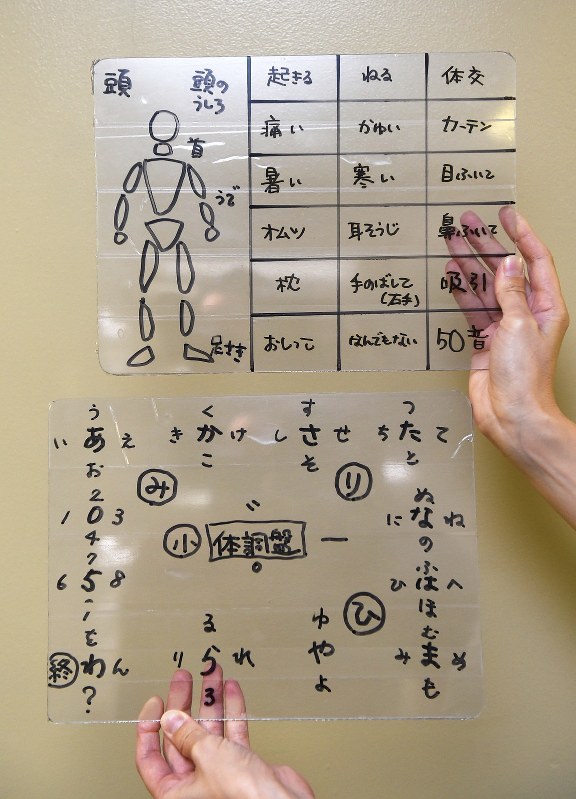 頭 頭の
うしろ
首
うで
足さき
起きる ねる 体交
痛い かゆい カーテン
暑い 寒い 目ふいて
オムツ 耳そうじ 鼻ふいて
枕 手のばして
(右手) 吸引
おしっこ なんでもない 50音
う く す つ
い あ え き か け し さ せ ち た て
お こ そ と
み り
2 ぬ
1 0 3 に な ね
4 の
゛
小 体調盤 ー
゜
7 ふ
6 5 8 ひ は へ
ほ
ひ
る ゆ む
を
終 わ ん り ら れ や み ま め
？ ろ よ も